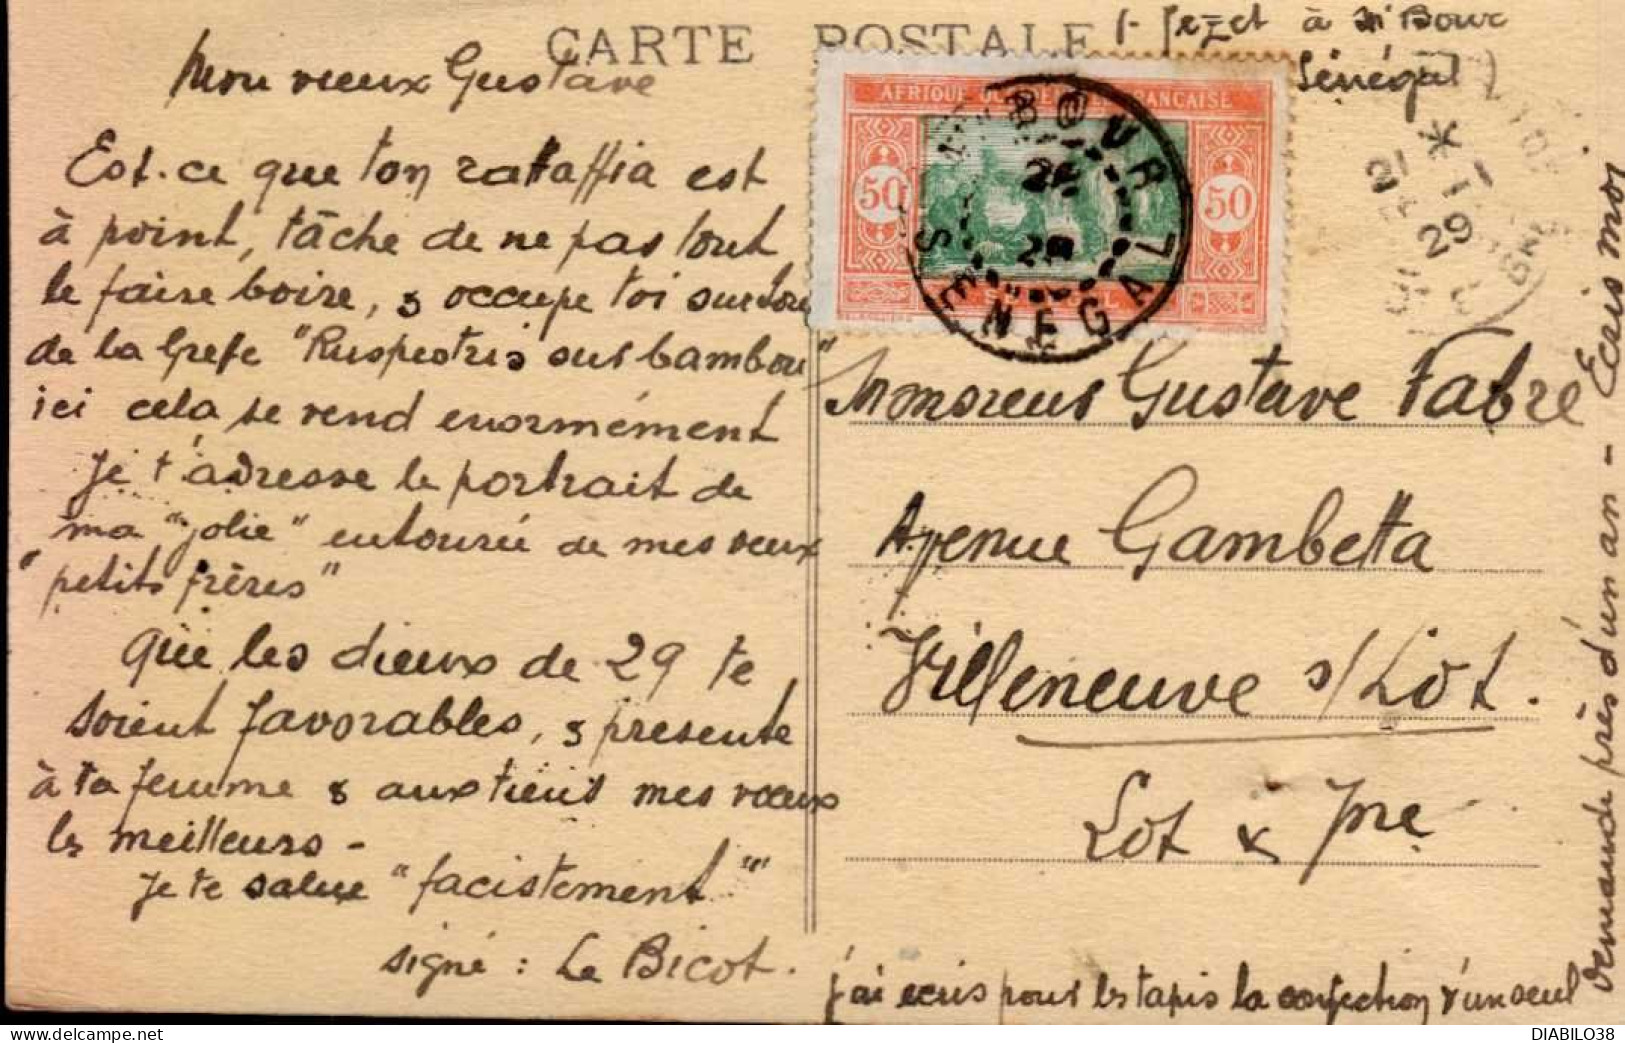 CARTE POSTALE
Jezet à M'Bour
Sénégal
Mon vieux Gustave
Est-ce que ton rataffia est
à point, tâche de ne pas tout
le faire boire, & occupe toi surtout
de la Grefe "Ruspestris sur bambou"
ici cela se vend enormément
Je t'adresse le portrait de
ma "jolie" entourée de mes vieux
"petits frères"
Que les dieux de 29 te
soient favorables, & presente
à ta femme & aux tiens mes vœux
les meilleurs -
Je te salue "facistement"
signé : Le Bicot.
AFRIQUE OCCIDENTALE FRANÇAISE
50
50
SÉNÉGAL
M'BOUR
SENEGAL
29
Monsieur Gustave Fabre
Avenue Gambetta
Villeneuve s/Lot.
Lot & Gne
j'ai ecris pour les tapis la confection d'un seul
demande près d'un an - Ecris moi
DIABILO38